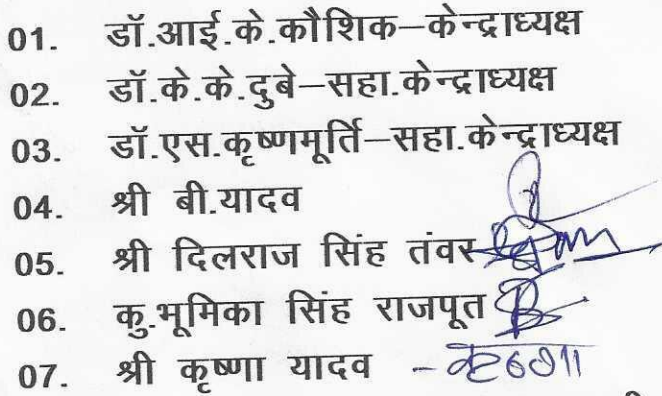 01. डॉ.आई.के.कौशिक–केन्द्राध्यक्ष
02. डॉ.के.के.दुबे–सहा.केन्द्राध्यक्ष
03. डॉ.एस.कृष्णमूर्ति–सहा.केन्द्राध्यक्ष
04. श्री बी.यादव
05. श्री दिलराज सिंह तंवर
06. कु.भूमिका सिंह राजपूत
07. श्री कृष्णा यादव -